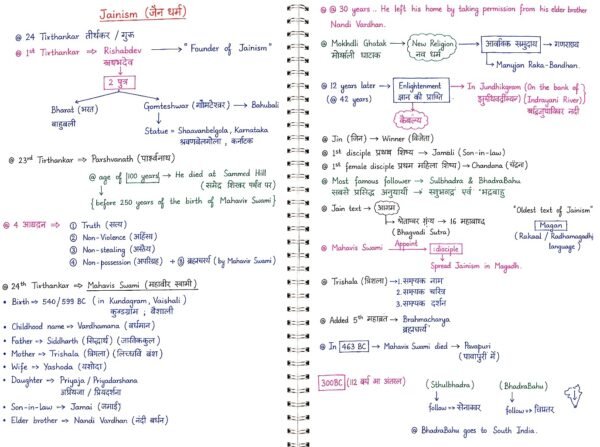 Jainism (जैन धर्म)
@ 24 Tixthankar तीर्थकर / गुरू
@ 1st Tirthankar ⇒ Rishabdev → "Founder of Jainism"
ऋषभदेव
2 पुत्र
Bharat (भरत)
बाहुबली
Gomteshwar (गौमटेश्वर) → Bahubali
Statue = Shaavanbelgola, Karnataka
श्रवणबेलगोला, कर्नाटक
@ 23rd Tirthankar ⇒ Parshvanath (पार्श्वनाथ)
@ age of 100 years → He died at Sammed Hill
(सम्मेद शिखर पर्वत पर)
{before 250 years of the birth of Mahavir Swami}
@ 4 ⇒ ① Truth (सत्य)
② Non-Violence (अहिंसा)
③ Non-stealing (अस्तेय)
④ Non-possession (अपरिग्रह) → ⑤ ब्रह्मचर्य (by Mahavir Swami)
@ 24th Tirthankar ⇒ Mahavis Swami (महावीर स्वामी)
• Birth ⇒ 540/599 BC (in Kundagram, Vaishali)
कुण्डग्राम, वैशाली
• Childhood name ⇒ Vardhamana (बर्धमान)
• Father ⇒ Siddharth (सिद्धार्थ)
• Mother ⇒ Trishala (लिच्छवि वंश)
• Wife ⇒ Yashoda (यशोदा)
• Daughter ⇒ Priyaja / Priyadarshana
/ प्रियदर्शना
• Son-in-law ⇒ Jamai (जमाई)
• Elder brother ⇒ Nandi Vardhan (नंदी बर्धन)
@ @ 30 years .. He left his home by taking permission from his elder brother
Nandi Vardhan.
@ Mokhdli Ghotak → New Religion → समुदाय →
घाटाक नव धर्म
Manujan Raka-Bandhan.
@ 12 years later → Enlightenment → In Jundhikgram (On the bank of
(@ 42 years) ज्ञान की प्राप्ति Indrayani River)
कैवल्य नदी
@ Jin (जिन) → Winner (विजेता)
@ 1st disciple प्रथम शिष्य → Jamali (Son-in-law)
@ 1st female disciple प्रथम महिला शिष्य → Chandona (चंदना)
@ Most famous follower → Sulbhadra & BhadraBahu
सबसे प्रसिद्ध अनुयायी → एवं भद्रबाहु
@ Jain text → आगम
→ 16
(Bhagvadi Sutra)
"Oldest text of Jainism"
Magan
(Rakaal / Radhamagadhi
language)
@ Mahavis Swami Appoint : disciple
Spread Jainism in Magadh.
@ Trishala (त्रिशला) → 1. सम्यक नाम
2. सम्यक चरित्र
3. सम्यक दर्शन
@ Added 5th महाव्रत → Brahmacharya
ब्रह्मचर्य
@ In 463 BC → Mahavis Swami died → Pavapuri
(पावापुरी में)
300BC (112 वर्ष
(Sthulbhadra)
follow ⇒
(BhadraBahu)
follow ⇒
@ BhadraBahu goes to South India.